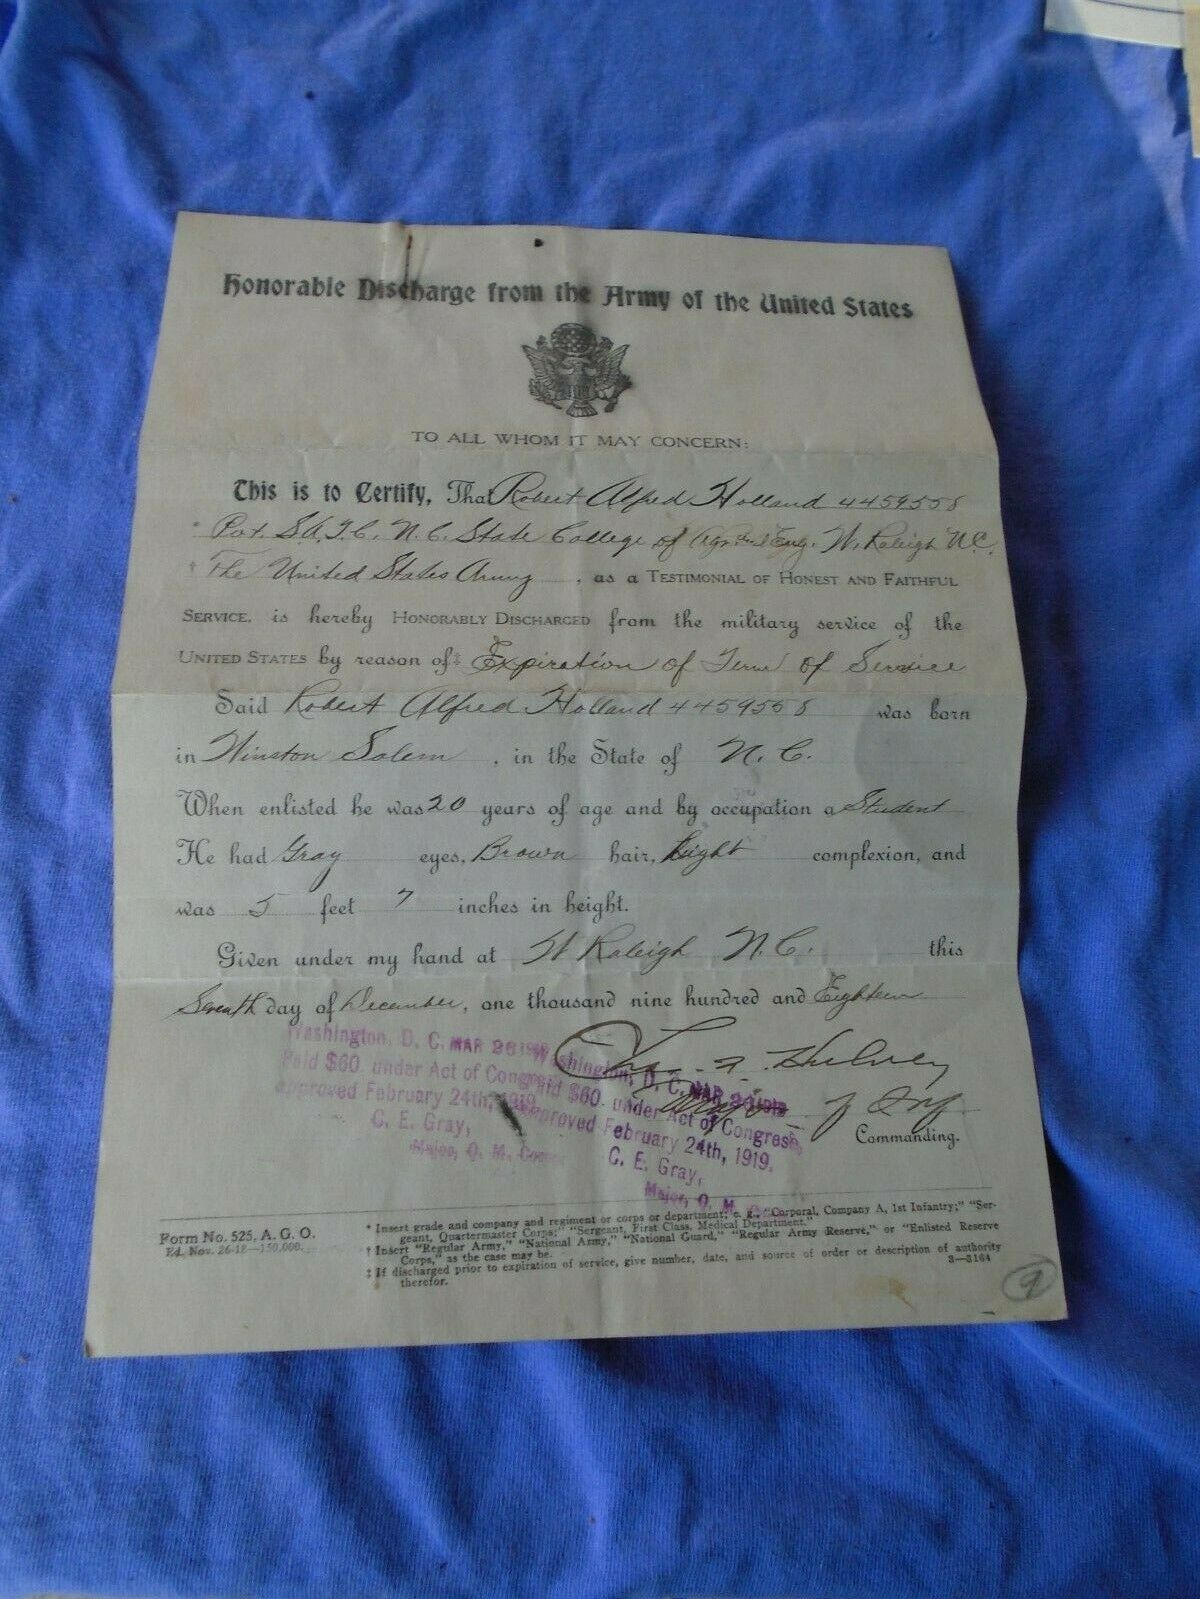 Honorable Discharge from the Army of the United States
TO ALL WHOM IT MAY CONCERN:
This is to Certify, That Robert Alfred Holland 4459558
* Pvt. S.A.T.C. N.C. State College of Agr. and Eng. W. Raleigh N.C.
† The United States Army, as a TESTIMONIAL OF HONEST AND FAITHFUL
SERVICE, is hereby HONORABLY DISCHARGED from the military service of the
UNITED STATES by reason of‡ Expiration of Term of Service
Said Robert Alfred Holland 4459558 was born
in Winston Salem, in the State of N.C.
When enlisted he was 20 years of age and by occupation a Student
He had Gray eyes, Brown hair, Light complexion, and
was 5 feet 7 inches in height.
Given under my hand at W Raleigh N.C. this
Seventh day of December, one thousand nine hundred and Eighteen
Washington, D. C. MAR 26 1919
Paid $60. under Act of Congress
approved February 24th, 1919.
C. E. Gray,
Major, Q. M. Corps
Washington, D. C. MAR 26 1919
Paid $60. under Act of Congress,
approved February 24th, 1919.
C. E. Gray,
Major, Q. M. C
Major of Inf
Commanding.
Form No. 525, A. G. O.
Ed. Nov. 26-18—150,000.
* Insert grade and company and regiment or corps or department; e. g., "Corporal, Company A, 1st Infantry;" "Ser-
geant, Quartermaster Corps;" "Sergeant, First Class, Medical Department."
† Insert "Regular Army," "National Army," "National Guard," "Regular Army Reserve," or "Enlisted Reserve
Corps," as the case may be.
‡ If discharged prior to expiration of service, give number, date, and source of order or description of authority
therefor.
3—3164
9